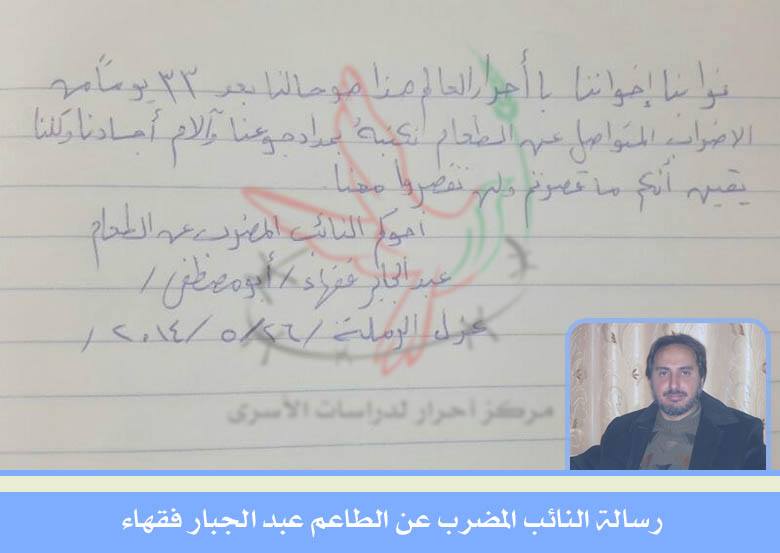 نوابنا إخواننا يا أحرار العالم هذا هو حالنا بعد ٣٣ يوماً من
الاضراب المتواصل عن الطعام نكتبهُ بمداد جوعنا وآلام أجسادنا وكلنا
يقين أنكم ما قصرتم ولن تقصروا معنا.
أخوكم النائب المضرب عن الطعام
عبد الجابر فقهاء / أبو مصطفى /
عزل الرملة / ٢٦ / ٥ / ٢٠١٤ /
مركز أحرار لدراسات الأسرى
رسالة النائب المضرب عن الطاعم عبد الجبار فقهاء